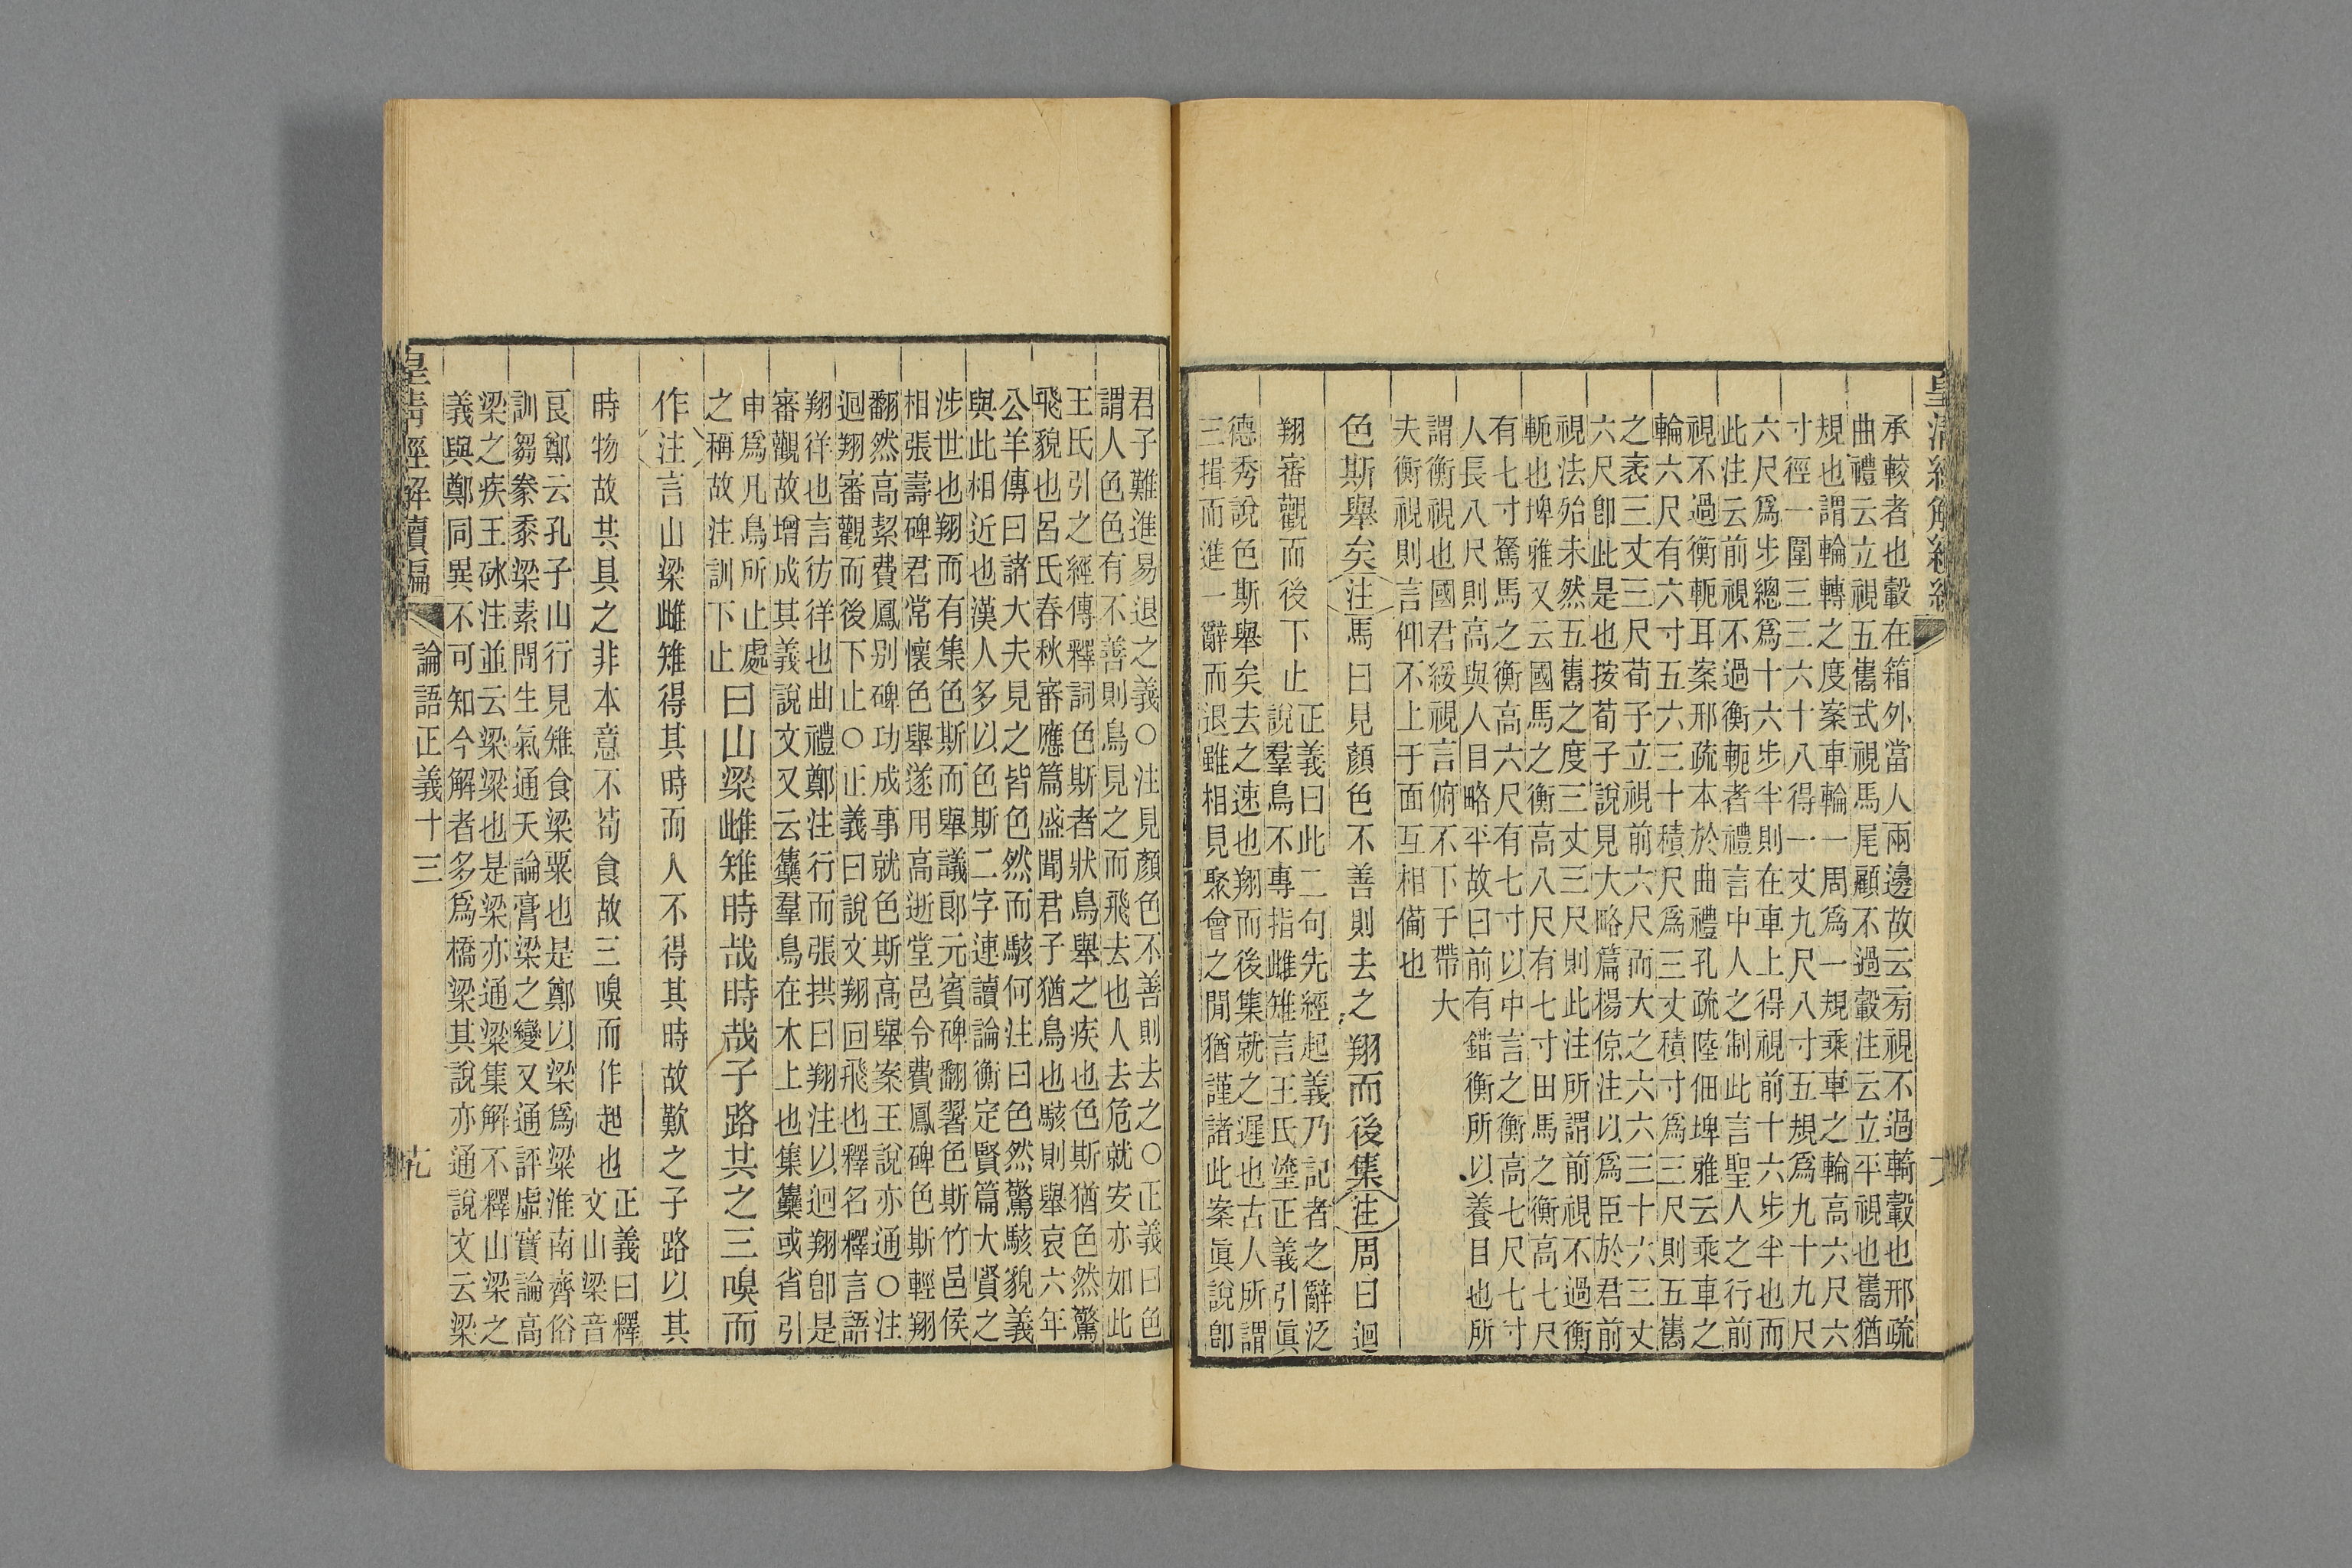 承較者也轂在箱外當人兩邊故云旁視不過輢轂也邢疏
曲禮云立視五巂式視馬尾顧不過轂注云立平視也巂猶
規也謂輪轉之度案車輪一周爲一規乘車之輪高六尺六
寸徑一圍三三六十八得一丈九尺八寸五規爲九十九尺
六尺爲步總爲十六步半則在車上得視前十六步半也而
此注云前視不過衡軛者禮言中人之制此言聖人之行前
視不過衡軛耳案邢疏本於曲禮孔疏陸佃埤雅云乘車之
輪六尺有六寸五六三十積尺爲三丈積寸爲三尺則五巂
之袤三丈三尺荀子立視前六尺而大之六六三十六三丈
六尺卽此是也按荀子說見大略篇楊倞注以爲臣於君前
視法殆未然五巂之度三丈三尺則此注所謂前視不過衡
軛也埤雅又云國馬之衡高八尺有七寸田馬之衡高七尺
有七寸駑馬之衡高六尺有七寸以中言之衡高七尺七寸
人長八尺則高與人目略平故曰前有錯衡所以養目也所
謂衡視也國君綏視言俯不下于帶大
夫衡視則言仰不上于面互相備也
色斯舉矣注馬曰見顏色不善則去之翔而後集注周曰迴
翔審觀而後下止
正義曰此二句先經起義乃記者之辭泛
說羣鳥不專指雌雉言王氏瀅正義引眞
德秀說色斯舉矣去之速也翔而後集就之遲也古人所謂
三揖而進一辭而退雖相見聚會之閒猶謹諸此案眞說卽
君子難進易退之義○注見顏色不善則去之○正義曰色
謂人色色有不善則鳥見之而飛去也人去危就安亦如此
王氏引之經傳釋詞色斯者狀鳥舉之疾也色斯猶色然驚
飛貌也呂氏春秋審應篇盛聞君子猶鳥也駭則舉哀六年
公羊傳曰諸大夫見之皆色然而駭何注曰色然驚駭貌義
與此相近也漢人多以色斯二字連讀論衡定賢篇大賢之
涉世也翔而有集色斯而舉議郎元賓碑翻翥色斯竹邑侯
相張壽碑君常懷色舉遂用高逝堂邑令費鳳碑色斯輕翔
翻然高絜費鳳別碑功成事就色斯高舉案王說亦通○注
迴翔審觀而後下止○正義曰說文翔回飛也釋名釋言語
翔佯也言彷徉也曲禮鄭注行而張拱曰翔注以迴翔卽是
審觀故增成其義說文又云雧羣鳥在木上也集雧或省引
申爲凡鳥所止處
之稱故注訓下止
曰山梁雌雉時哉時哉子路共之三嗅而
作注言山梁雌雉得其時而人不得其時故歎之子路以其
時物故共具之非本意不苟食故三嗅而作作起也
正義曰釋
文山梁音
良鄭云孔子山行見雉食梁粟也是鄭以梁爲粱淮南齊俗
訓芻豢黍粱素問生氣通天論膏梁之變又通評虛實論高
梁之疾王砅注並云梁粱也是梁亦通粱集解不釋山梁之
義與鄭同異不可知今解者多爲橋梁其說亦通說文云梁
皇清經解續編 論語正義十三